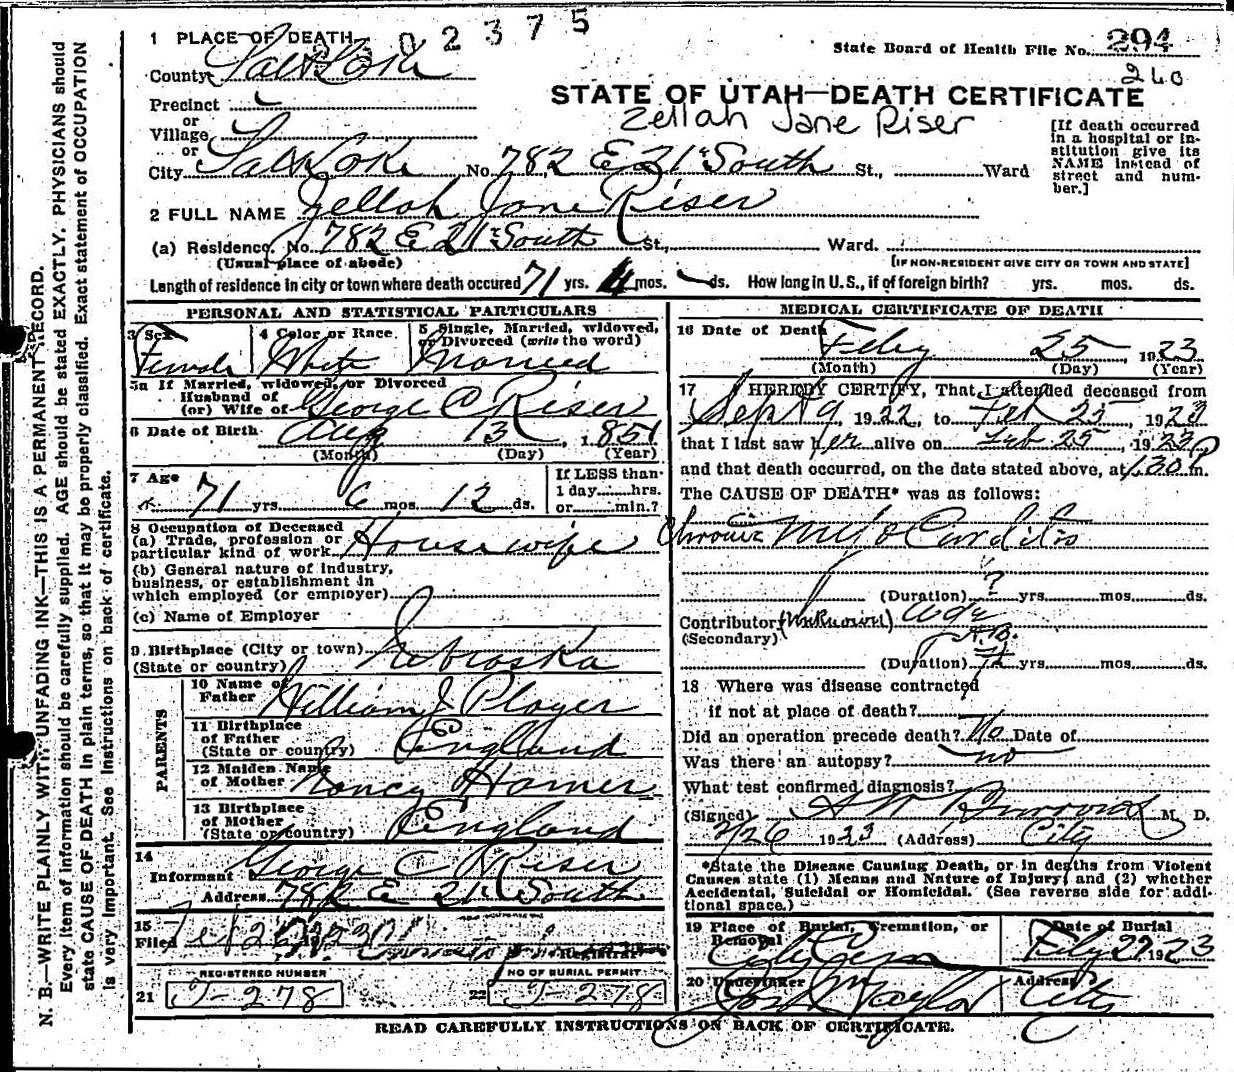 2 3 7 5
1 PLACE OF DEATH
State Board of Health File No. 294
County Salt Lake
260
STATE OF UTAH—DEATH CERTIFICATE
Precinct
Zellah Jane Riser
or
Village
or
City Salt Lake No. 782 E 21st South St., Ward
[If death occurred in a hospital or institution give its NAME instead of street and number.]
2 FULL NAME Zellah Jane Riser
(a) Residence. No. 782 E 21st South St., Ward.
(Usual place of abode)
[IF NON-RESIDENT GIVE CITY OR TOWN AND STATE]
Length of residence in city or town where death occured 71 yrs. mos. ds. How long in U. S., if of foreign birth? yrs. mos. ds.
PERSONAL AND STATISTICAL PARTICULARS
3 Sex
Female
4 Color or Race
White
5 Single, Married, widowed,
or Divorced (write the word)
Married
5a If Married, widowed, or Divorced
Husband of
(or) Wife of George C Riser
6 Date of Birth Aug 13, 1851
(Month) (Day) (Year)
7 Age
71 yrs 6 mos 12 ds.
If LESS than
1 day hrs.
or min.?
8 Occupation of Deceased
(a) Trade, profession or
particular kind of work Housewife
(b) General nature of industry,
business, or establishment in
which employed (or employer)
(c) Name of Employer
9 Birthplace (City or town)
(State or country) Nebraska
PARENTS
10 Name of
Father William J Player
11 Birthplace
of Father
(State or country) England
12 Maiden Name
of Mother Nancy Hamer
13 Birthplace
of Mother
(State or country) England
14
Informant George C Riser
Address 782 E 21st South
15
Filed
Registrar
REGISTERED NUMBER
21 J-278
NO OF BURIAL PERMIT
22 J-278
MEDICAL CERTIFICATE OF DEATH
16 Date of Death Feby 25, 1923
(Month) (Day) (Year)
17 I HEREBY CERTIFY, That I attended deceased from
Sept 9, 1922, to Feb 25, 1923
that I last saw her alive on Feb 25, 1923
and that death occurred, on the date stated above, at 1:30 P m.
The CAUSE OF DEATH* was as follows:
Chronic Myocarditis
(Duration) ? yrs. mos. ds.
Contributory (Unknown) Age
(Secondary)
(Duration) yrs. mos. ds.
18 Where was disease contracted
if not at place of death?
Did an operation precede death? No Date of
Was there an autopsy? no
What test confirmed diagnosis?
(Signed) M. D.
2/26 1923 (Address) City
*State the Disease Causing Death, or in deaths from Violent
Causes state (1) Means and Nature of Injury; and (2) whether
Accidental, Suicidal or Homicidal. (See reverse side for additional space.)
19 Place of Burial, Cremation, or
Removal
City Cem
Date of Burial
Feby 27 1923
20 Undertaker
Jos Wm Taylor
Address
City
READ CAREFULLY INSTRUCTIONS ON BACK OF CERTIFICATE.
N. B.—WRITE PLAINLY WITH UNFADING INK—THIS IS A PERMANENT RECORD.
Every item of information should be carefully supplied. AGE should be stated EXACTLY. PHYSICIANS should
state CAUSE OF DEATH in plain terms, so that it may be properly classified. Exact statement of OCCUPATION
is very important. See instructions on back of certificate.